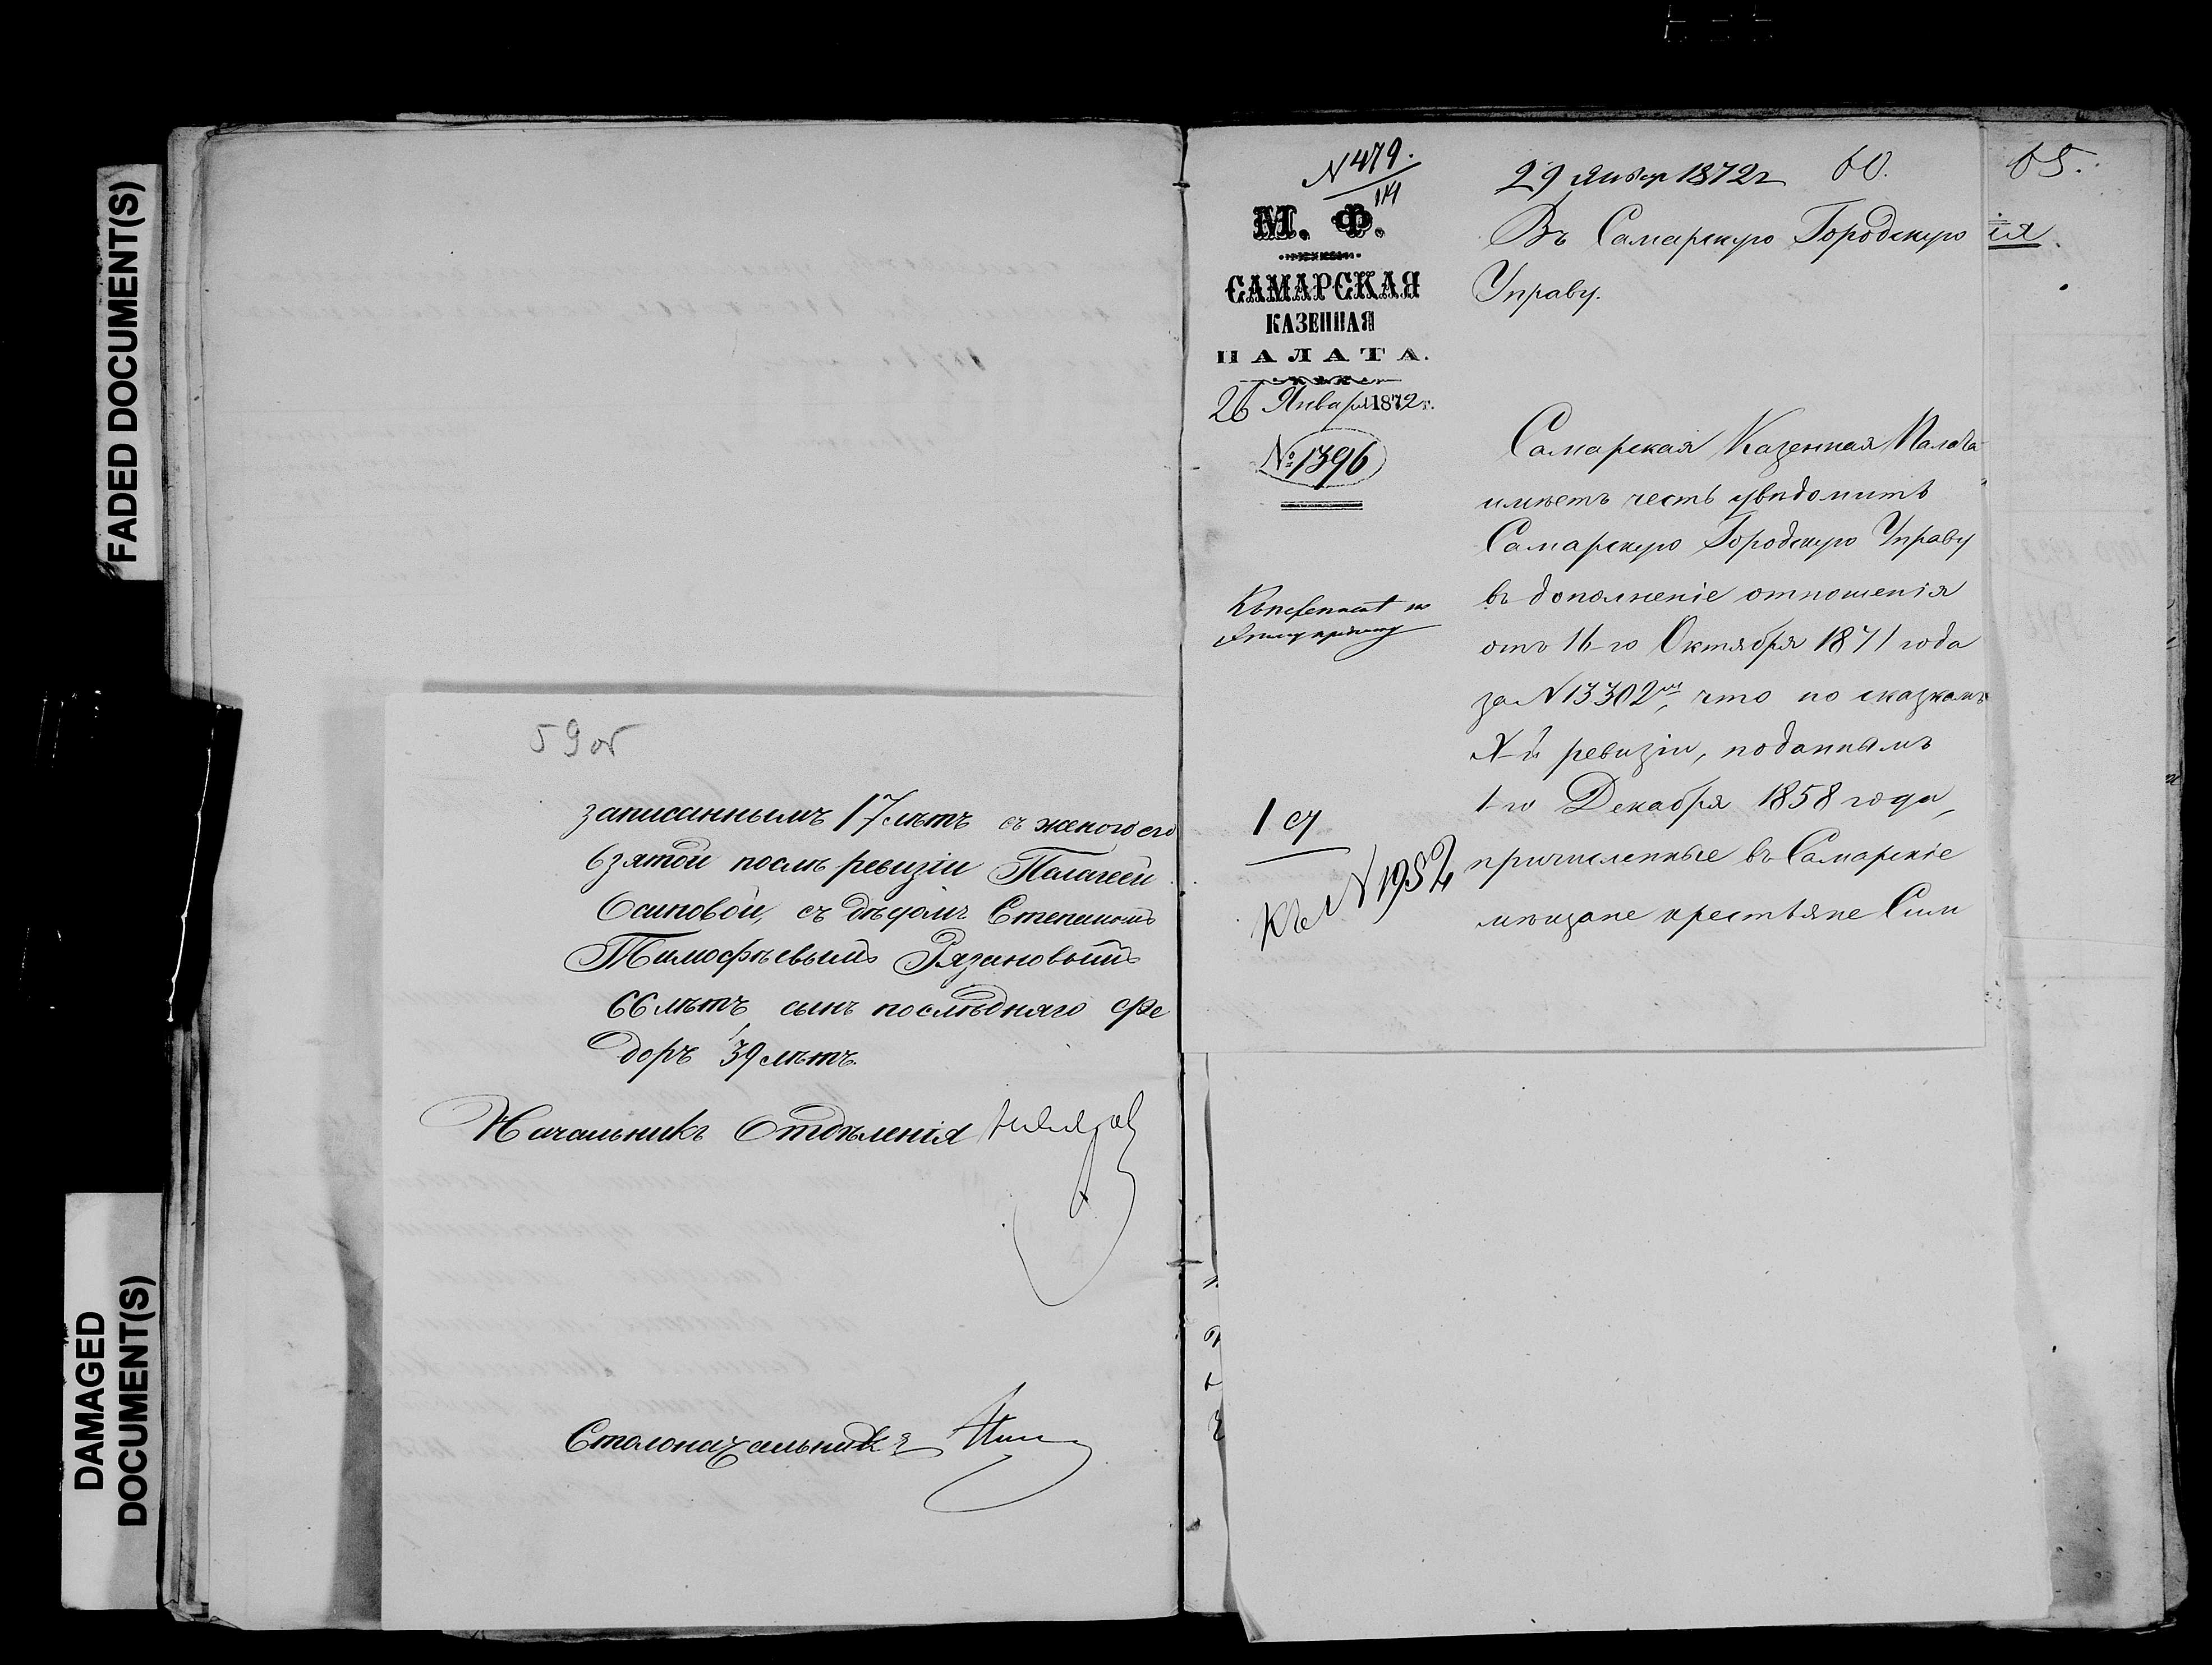 FADED DOCUMENT(S)
DAMAGED
DOCUMENT(S)
59об
записаннымъ 17 лѣтъ съ женою его
взятой послѣ ревизіи Палагеей
Осиповой, съ дѣдомъ Степаномъ
Тимофѣевымъ Рязановымъ
66 лѣтъ сынъ послѣдняго Фе
доръ 39 лѣтъ.
Начальникъ Отдѣленія
Столоначальникъ
N 479.
М. Ф.
САМАРСКАЯ
КАЗЕННАЯ
ПАЛАТА.
26 Января 1872 г.
№ 1396
1 ст
къ N 1952
29 Январ 1872 г
60.
Въ Самарскую Городскую
Управу.
Самарская Казенная Палата
имѣетъ честь увѣдомить
Самарскую Городскую Управу
въ дополненіе отношенія
отъ 16-го Октября 1871 года
за N 13302, что по сказкамъ
X-й ревизіи, поданнымъ
1-го Декабря 1858 года,
причисленные въ Самарскіе
мѣщане крестьяне Сим
65.
ія